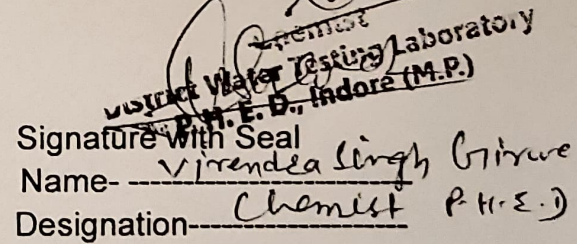 Chemist
District Water Testing Laboratory
P.H.E.D., Indore (M.P.)
Signature with Seal
Name- Virendra Singh
Designation- Chemist P.H.E.D